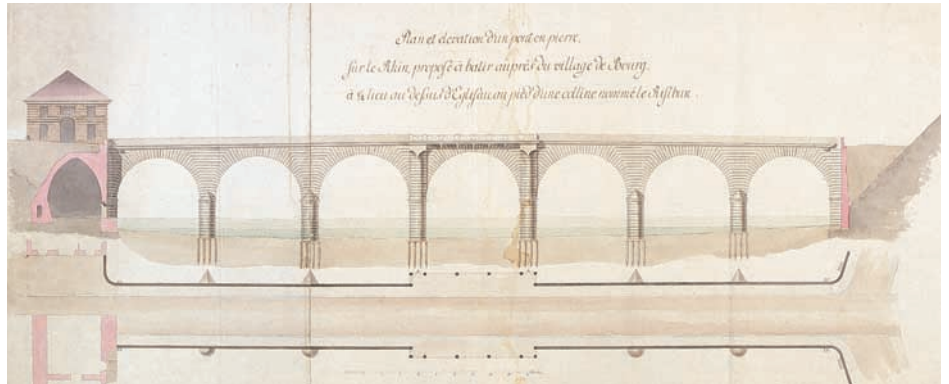 Plan et elevation d'un pont en pierre,
sur le Rhin, proposé à batir auprés du village de Bourg.
à lieu au desus d'Eglisau au pied d'une colline nommé le